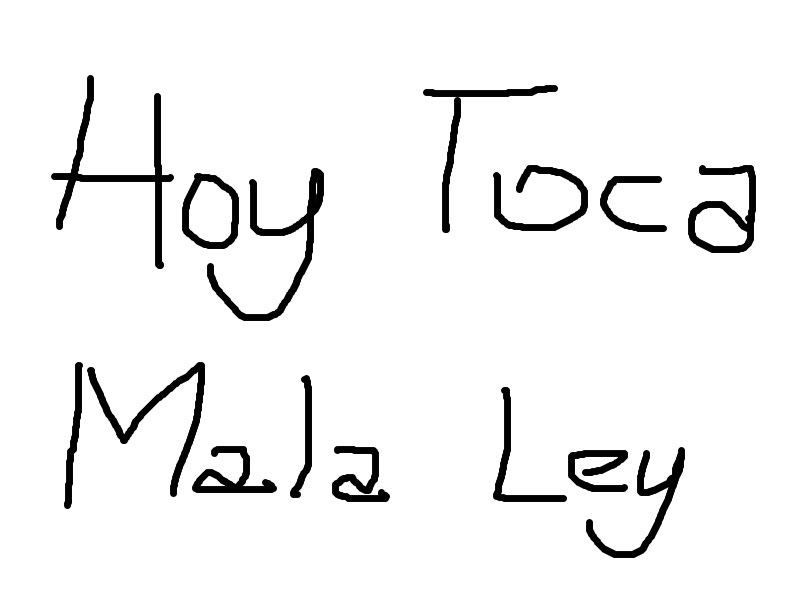 Hoy Toca
Mala Ley